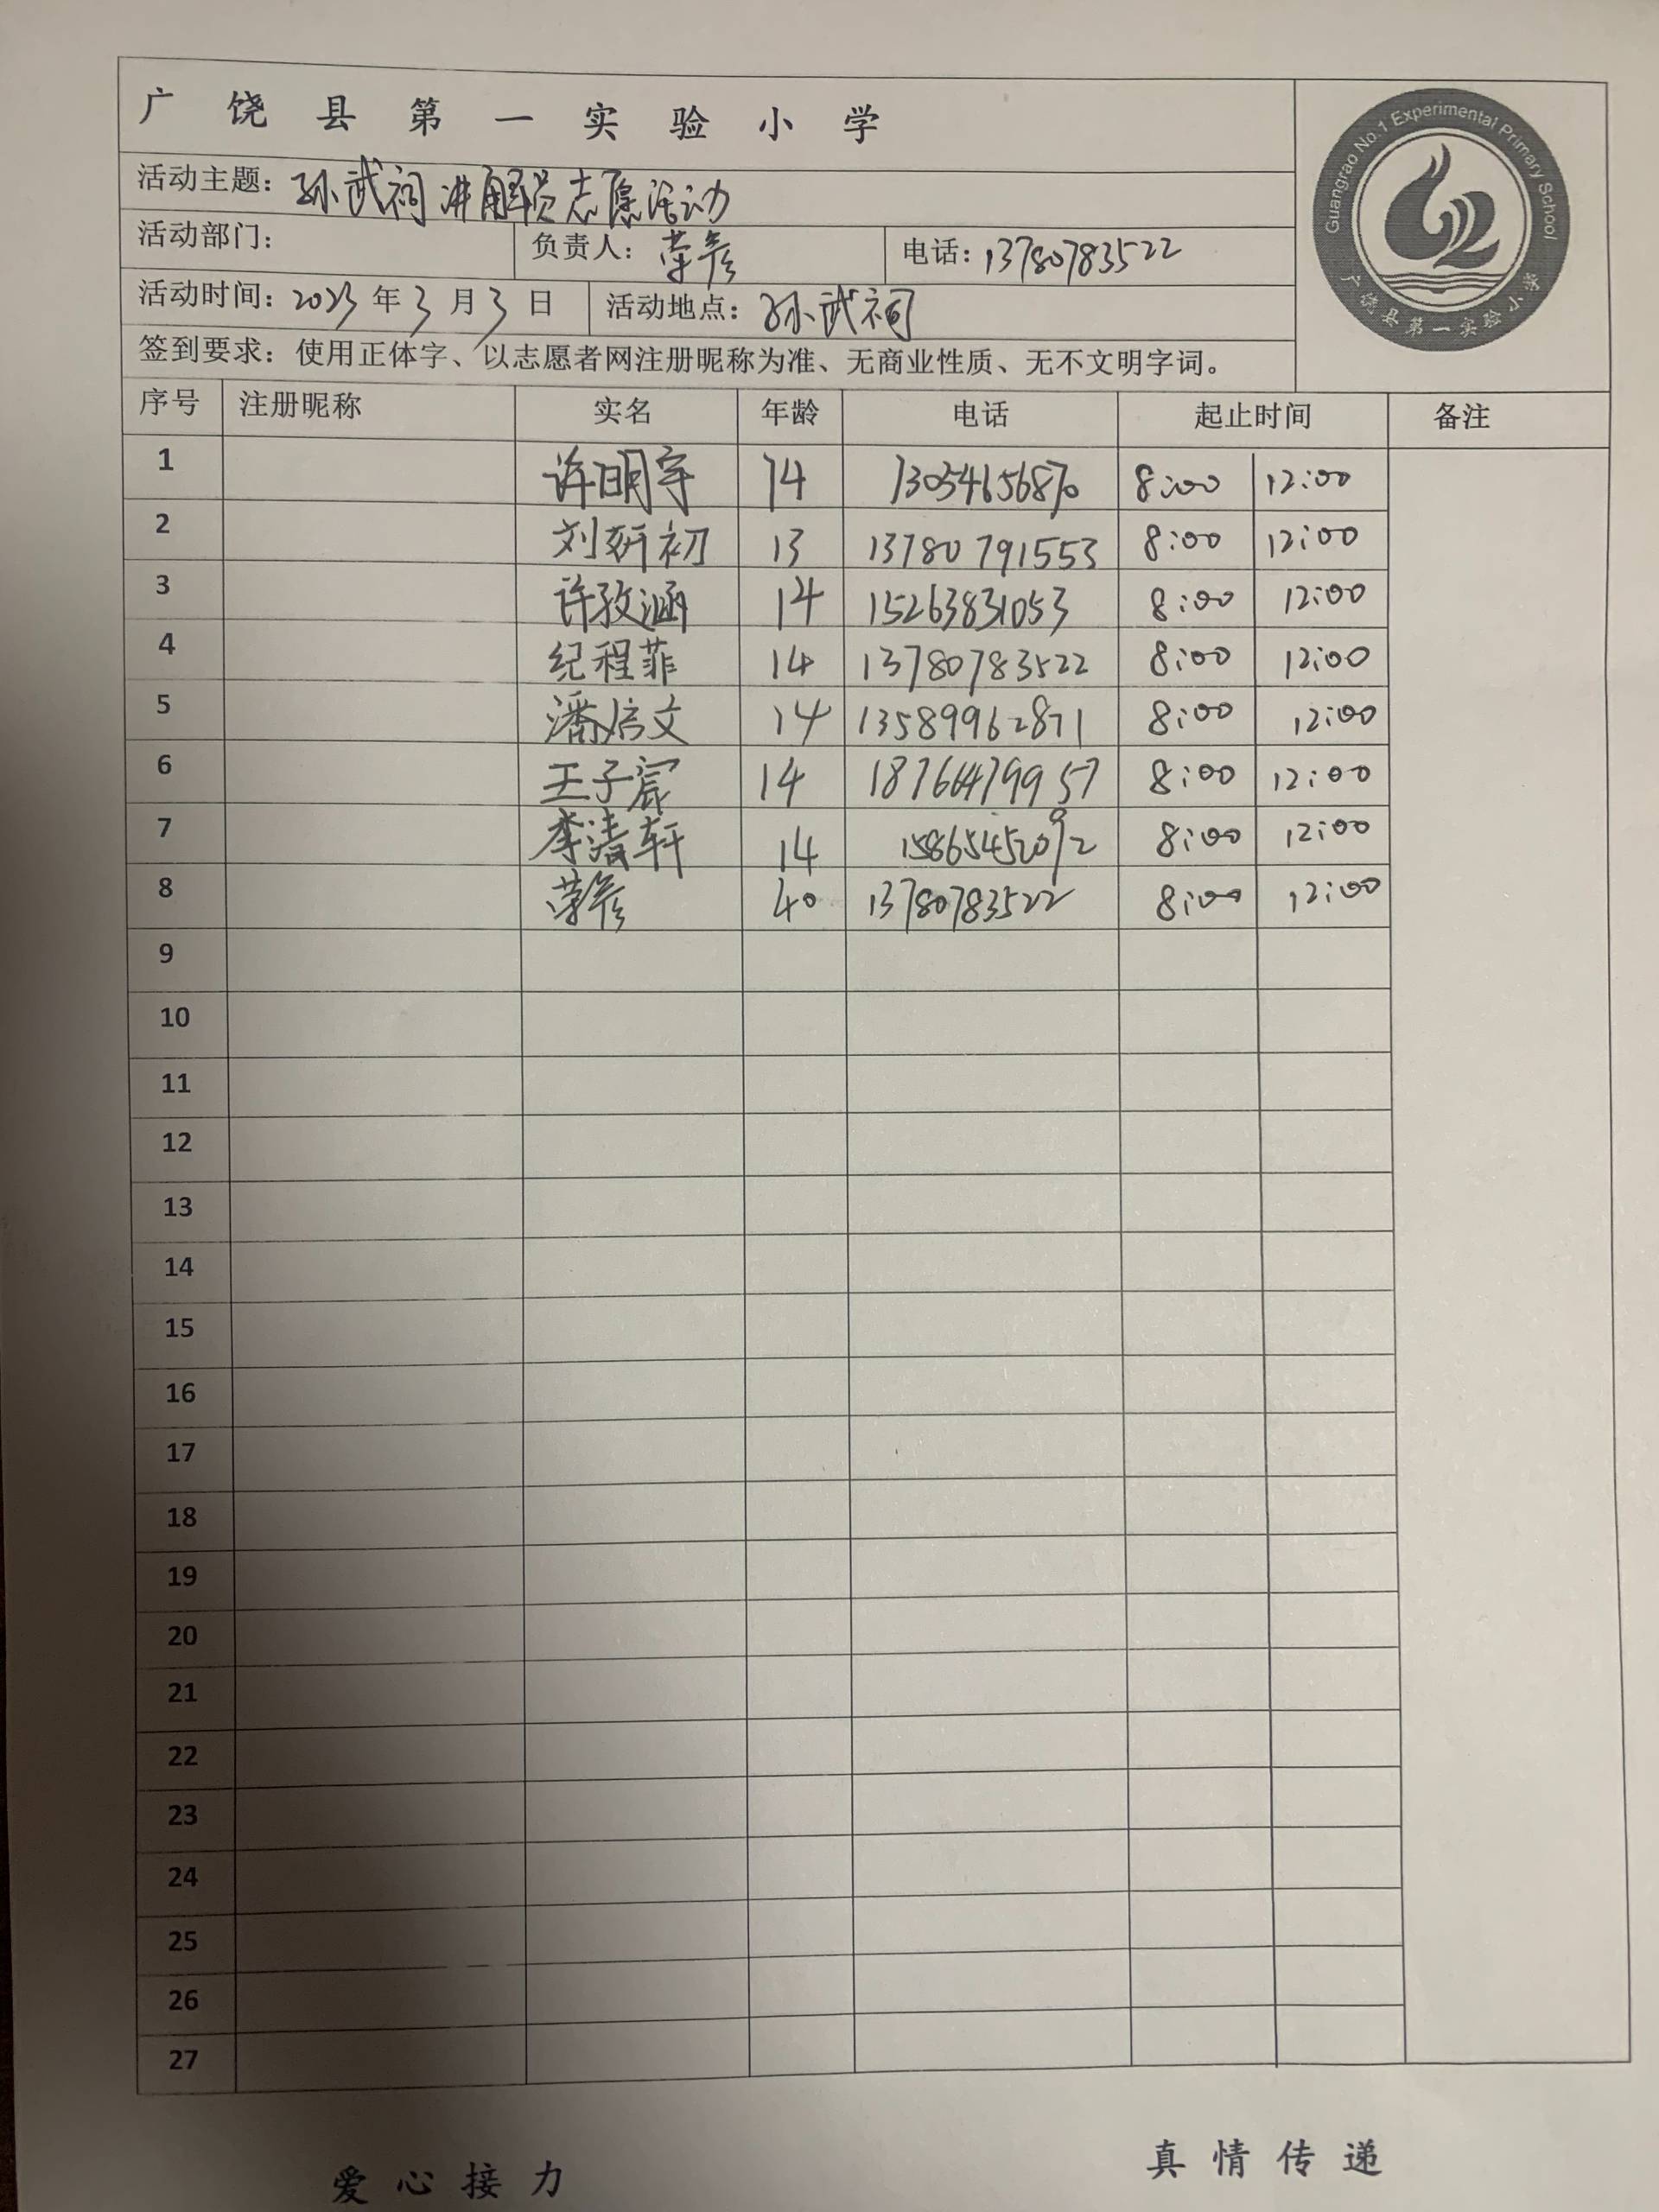 广饶县第一实验小学
Guangrao No.1 Experimental Primary School
广饶县第一实验小学
活动主题：孙武祠讲解员志愿活动
活动部门： 负责人：荣彦 电话：13780783522
活动时间：2023年3月3日 活动地点：孙武祠
签到要求：使用正体字、以志愿者网注册昵称为准、无商业性质、无不文明字词。
序号 注册昵称 实名 年龄 电话 起止时间 备注
1 许明宇 14 13054656870 8:00 12:00
2 刘妍初 13 13780791553 8:00 12:00
3 许孜涵 14 15263831053 8:00 12:00
4 纪程菲 14 13780783522 8:00 12:00
5 潘信文 14 13589962871 8:00 12:00
6 王子宸 14 18766479957 8:00 12:00
7 李清轩 14 15865452092 8:00 12:00
8 荣彦 40 13780783522 8:00 12:00
9
10
11
12
13
14
15
16
17
18
19
20
21
22
23
24
25
26
27
爱心接力 真情传递